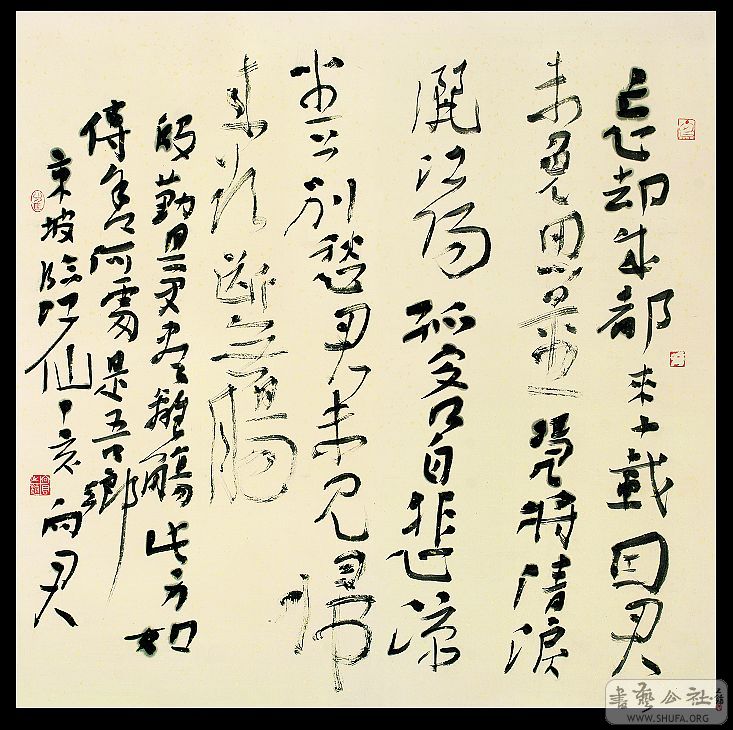 忘却成都来十載因君
未免思量凭将清淚
灑江陽孤客自悲凉
坐上别愁君未見歸
来欲斷無腸
殷勤且更盡離觴此身如
傳舍何處是吾鄉
東坡臨江仙丁亥向君
書藝公社
WWW.SHUFA.ORG